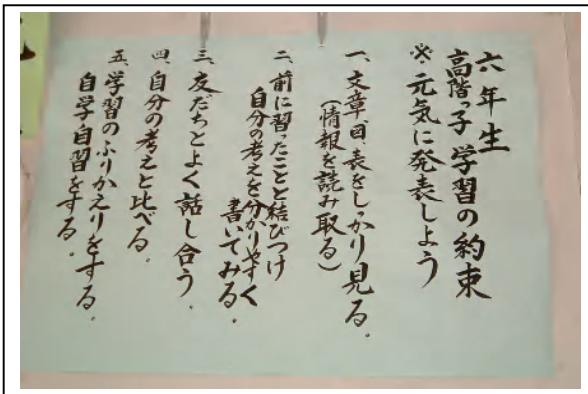 六年生
高階っ子学習の約束
※元気に発表しよう
一、文章、図、表をしっかり見る。
(情報を読み取る)
二、前に習ったことと結びつけ
自分の考えを分かりやすく
書いてみる。
三、友だちとよく話し合う。
四、自分の考えと比べる。
五、学習のふりかえりをする。
自学自習をする。